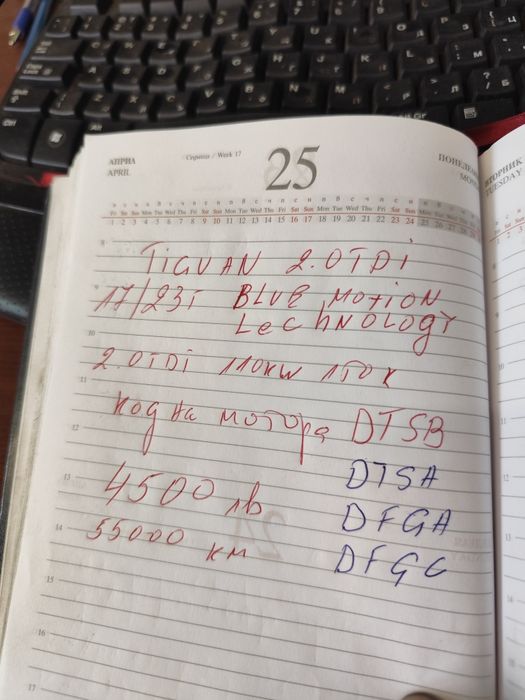 АПРИЛ
APRIL
Седмица / Week 17
25
ПОНЕДЕЛ
MON
ВТОРНИК
TUESDAY
Fri Sat Sun Mon Tue Wed Thu Fri Sat Sun Mon Tue Wed Thu Fri Sat Sun Mon Tue Wed Thu Fri Sat Sun Mon Tue Wed Thu
1 2 3 4 5 6 7 8 9 10 11 12 13 14 15 16 17 18 19 20 21 22 23 24 25 26 27 28
TIGUAN 2.0TDi
17/23г BLUE MOTION
TECHNOLOGY
10
2.0TDI 110KW 150K
11
КОД НА мотора DTSB
12
DTSA
13
4500 лв
DFGA
14
55000 км
DFGC
15
16
17